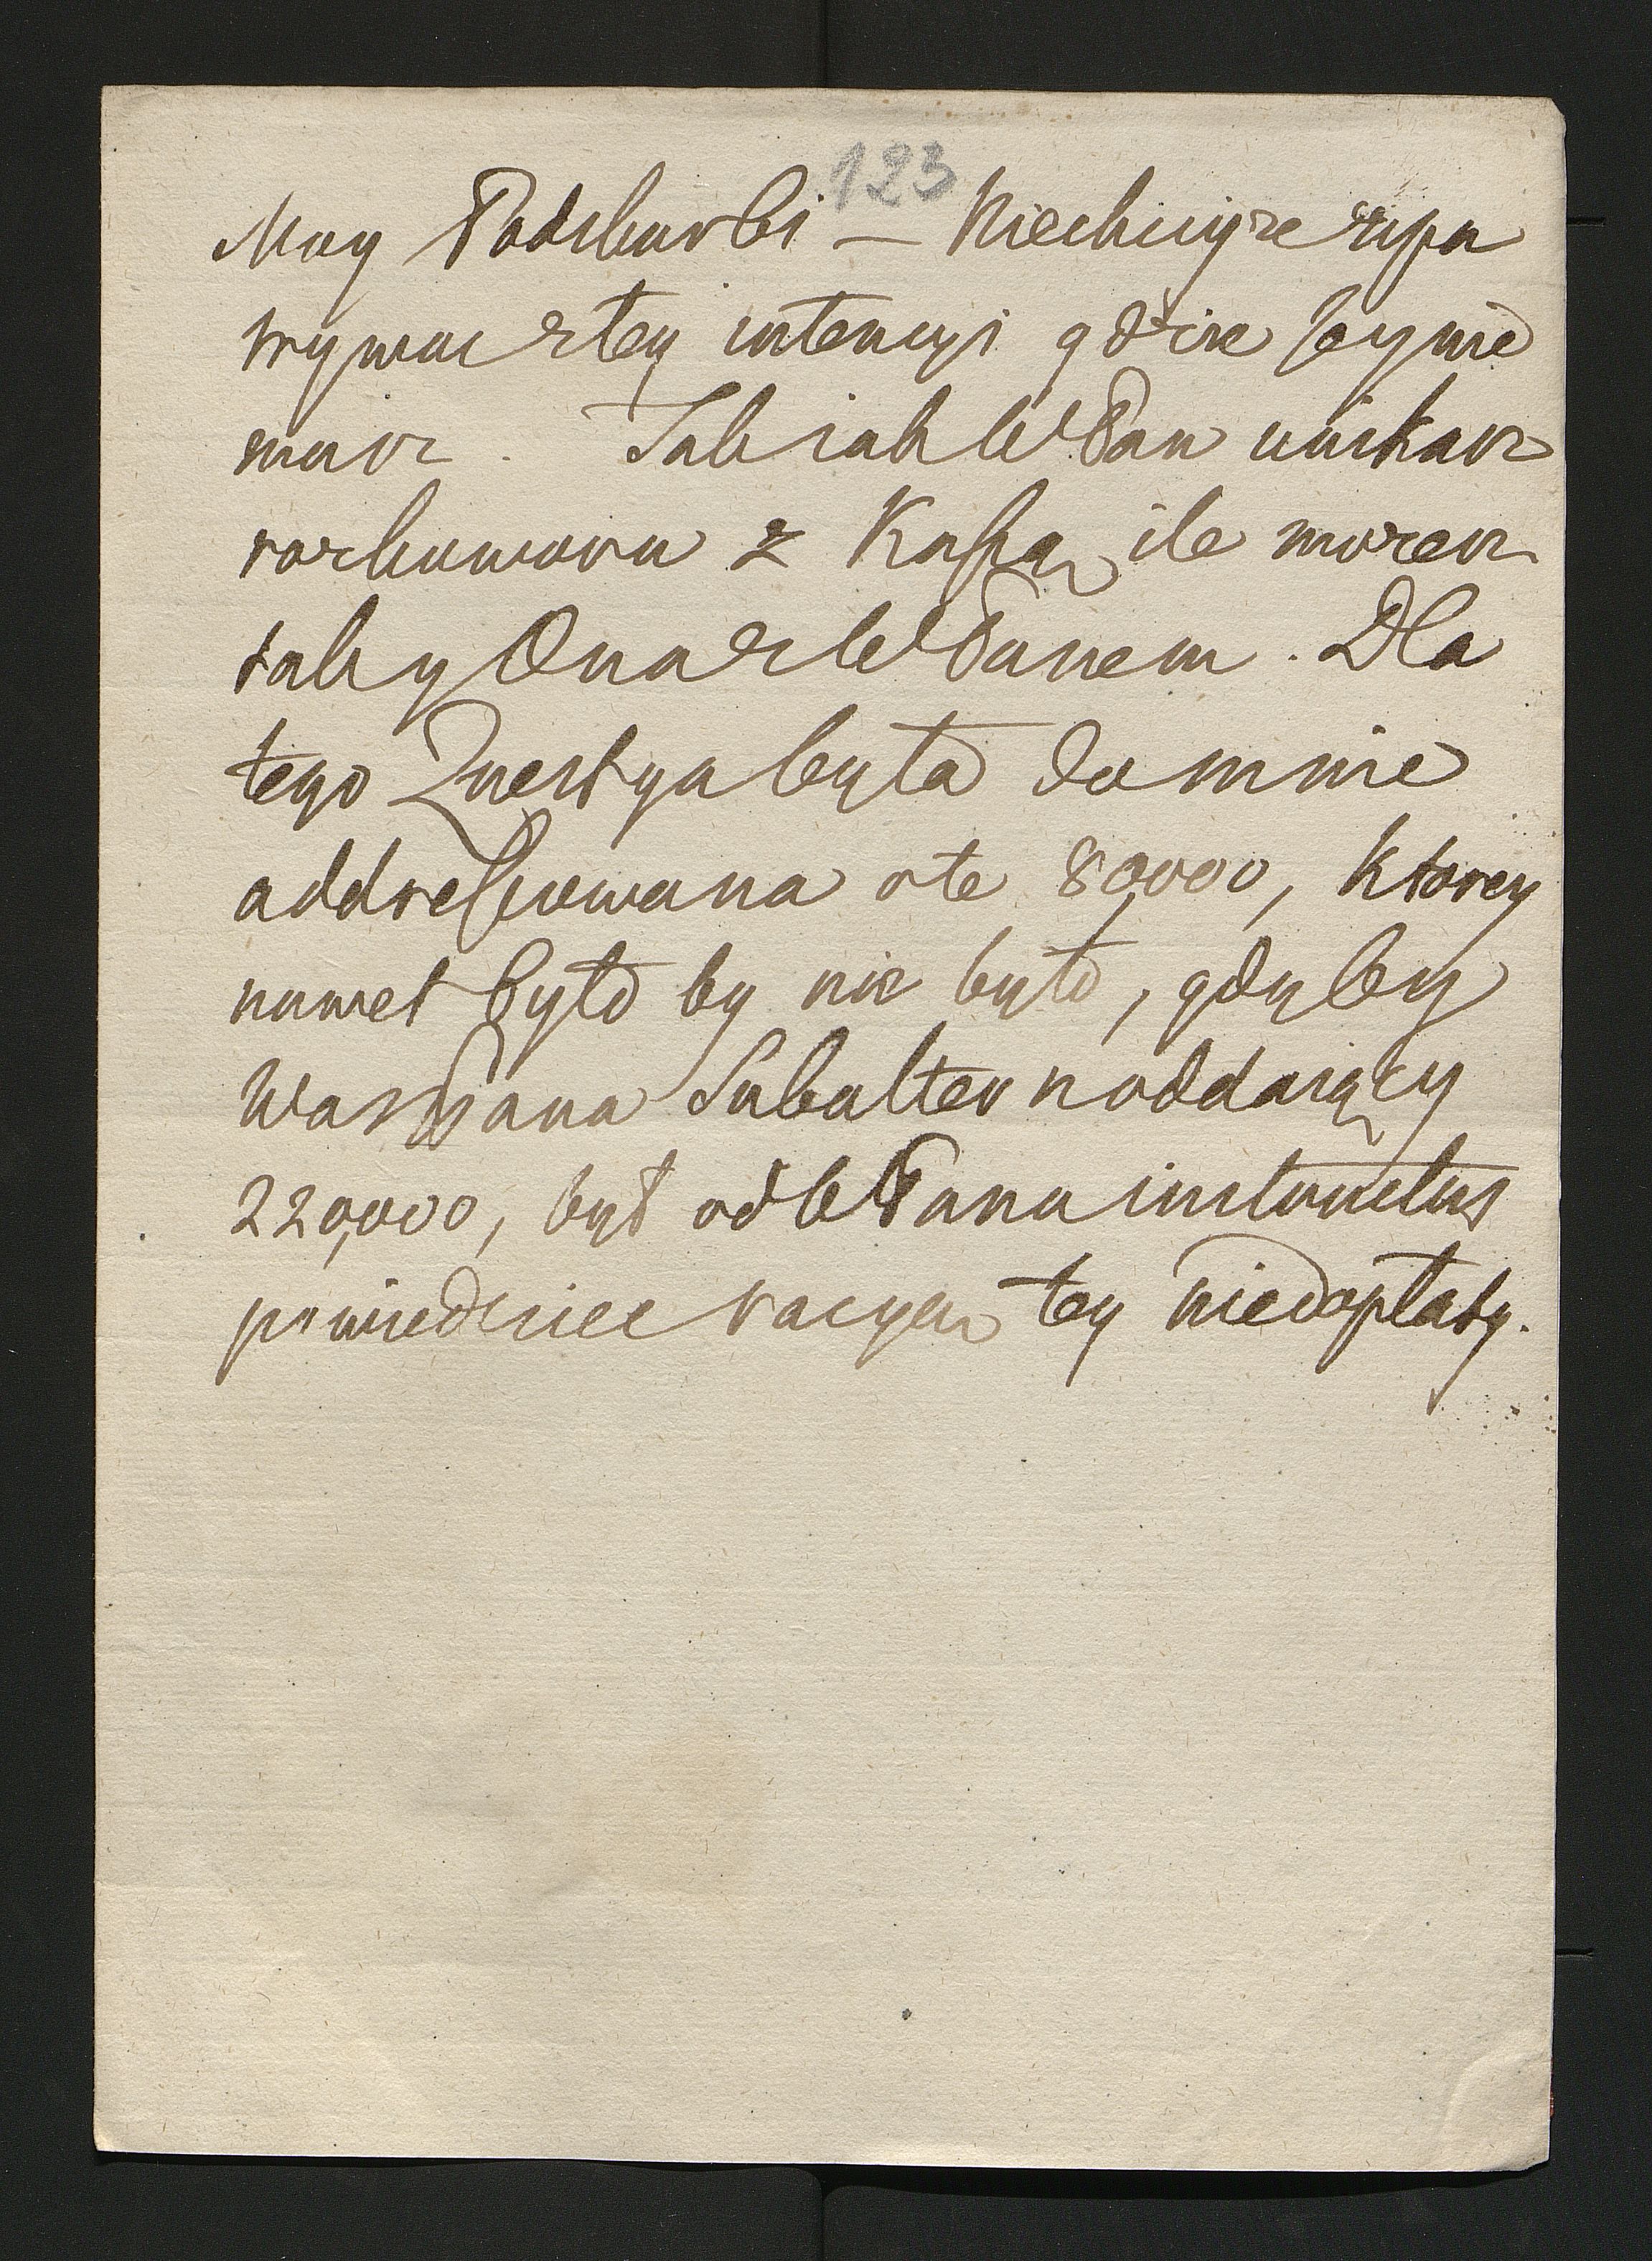 123
Moy Podskarbi — Niechciyże upa
trywac złey intencyi gdzie Jey nie
masz. Tak iak WPan uiskasz
rozkuwasz z Kassą ile możesz
tak y Ona z WPanem. Dla
tego Questya była do mnie
addressowana o te 80000, Ktorey
nawet było by nie było, gdyby
WaszPana Subaltern oddaiący
220,000, był od WPana instructus
powiedziec racyą tey niedopłaty.